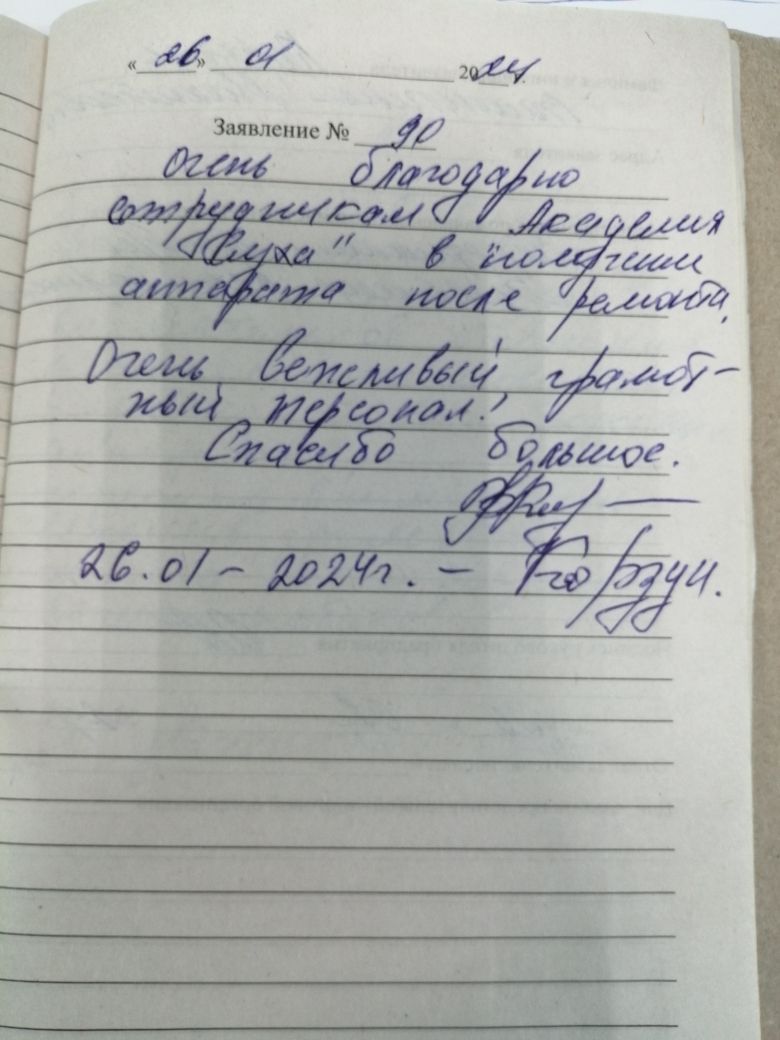 «26» 01 2024.
Заявление № 90
Очень благодарно
сотрудникам Академия
Слуха" в получении
аппарата после ремонта.
Очень вежливый, грамот-
ный персонал!
Спасибо большое.
26.01 - 2024г. - Корзун.